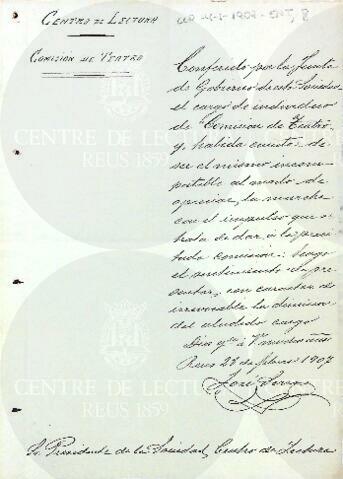 CENTRO DE LECTURA
COMISIÓN DE TEATRO
Conferido por la Junta
de Gobierno de esta Sociedad
el cargo de individuo
de Comisión de Teatro
y habida cuenta de
ser el mismo incom-
patible al modo de
apreciar la marcha
con el impulso que se
trata de dar á la preci-
tada comisión: tengo
el sentimiento de pre-
sentar, con caracter de
irrevocable la dimision
del aludido cargo
Dios gde á V. muchos años
Reus 28 de febrero 1907
José
Sr. Presidente de la Sociedad, Centro de Lectura
CENTRE DE LECTURA
REUS 1859
CENTRE DE LECTURA
REUS 1859